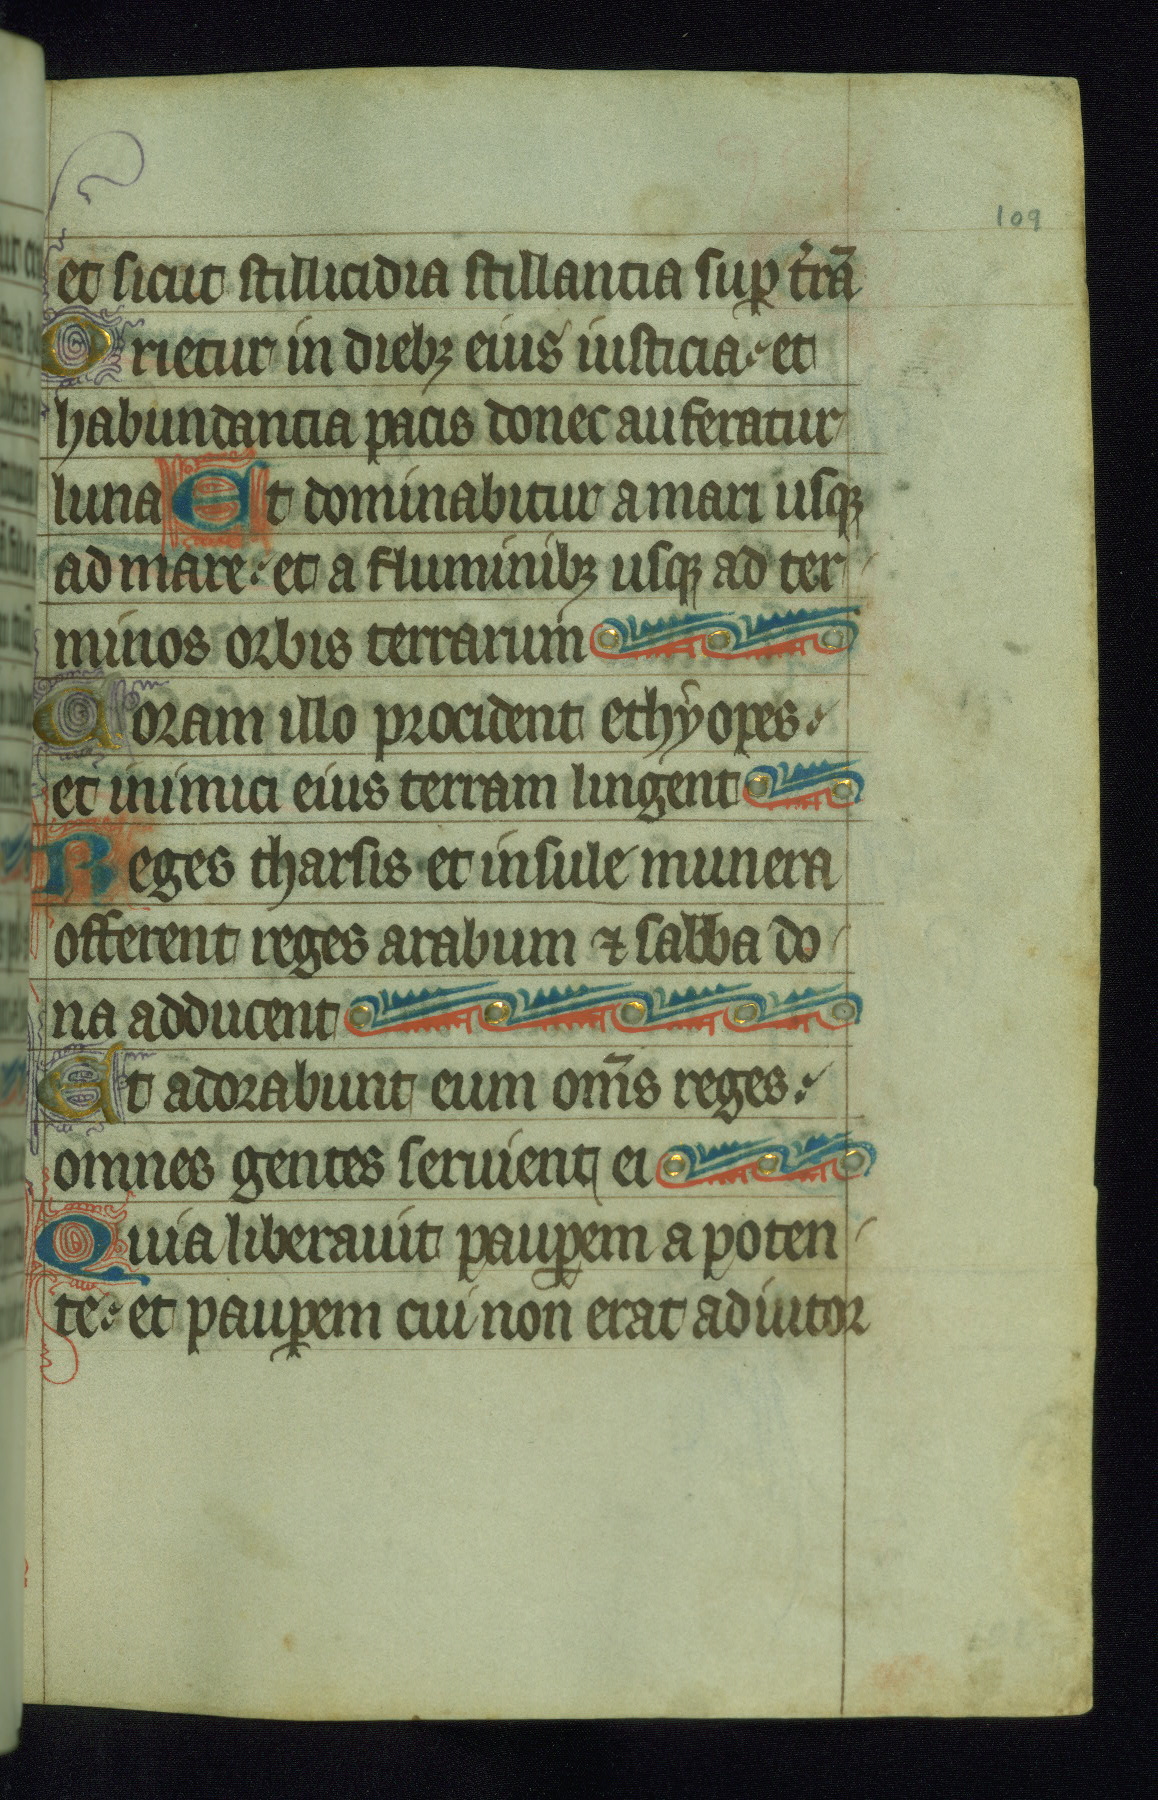 109
et sicut stillicidia stillantia sup̱ t̉rā
Orietur in diebꝫ eius iusticia et
habundancia pacis donec auferatur
luna Et dominabitur a mari usqꝫ
ad mare et a fluminibꝫ usqꝫ ad ter
minos orbis terrarum
Coram illo procident ethyopes
et inimici eius terram lingent
Reges tharsis et insule munera
offerent reges arabum ⁊ sabba do
na adducent
Et adorabunt eum om̄s reges
omnes gentes seruient ei
Quia liberauit pauꝑem a poten
te et pauꝑem cui non erat adiutor